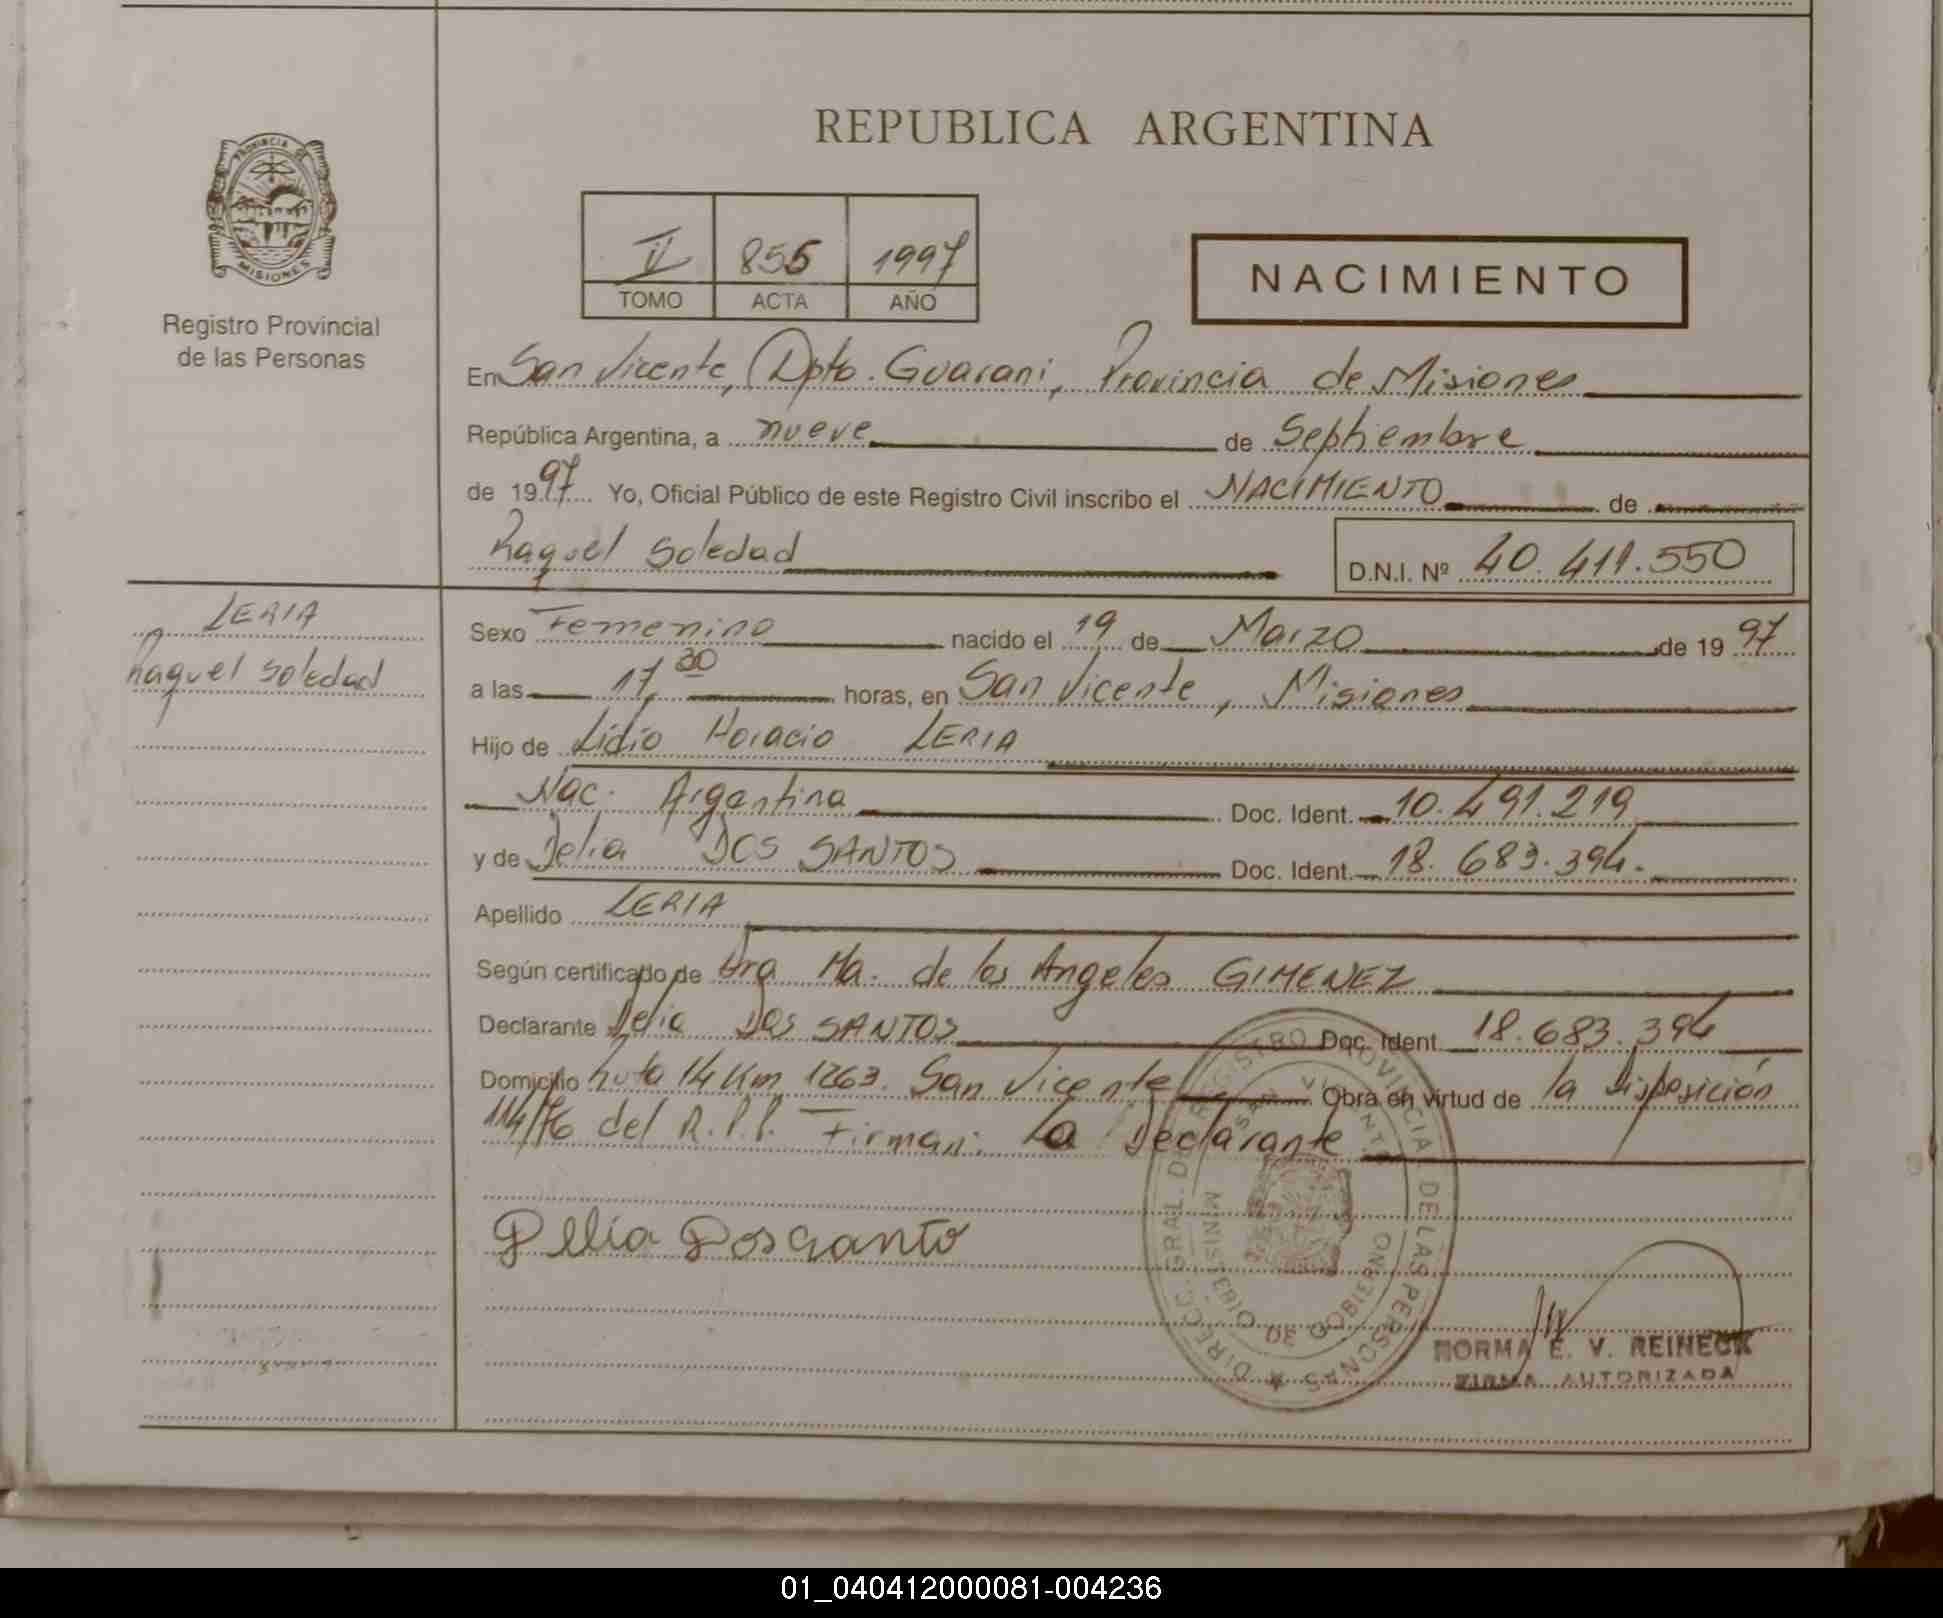 REPUBLICA ARGENTINA
PROVINCIA DE
MISIONES
Registro Provincial
de las Personas
II 855 1997
TOMO ACTA AÑO
NACIMIENTO
En San Vicente, Dpto. Guarani, Provincia de Misiones
República Argentina, a nueve de Septiembre
de 1997 Yo, Oficial Público de este Registro Civil inscribo el NACIMIENTO de
Raquel Soledad
D.N.I. Nº 40.411.550
LERIA
Raquel Soledad
Sexo Femenino nacido el 19 de Marzo de 1997
a las 17,30 horas, en San Vicente, Misiones
Hijo de Lidio Horacio LERIA
Nac. Argentina Doc. Ident. 10.491.219
y de Delia DOS SANTOS Doc. Ident. 18.683.394.
Apellido LERIA
Según certificado de Dra Ma. de los Angeles GIMENEZ
Declarante Delia Dos SANTOS Doc. Ident. 18.683.394
Domicilio Ruta 14 Km 1263. San Vicente Obra en virtud de la Disposición
114/76 del R.P.P. Firman: La Declarante
Delia Dosganto
DIRECC. GRAL. DEL REGISTRO PROVINCIAL DE LAS PERSONAS
SAN VICENTE
MINISTERIO DE GOBIERNO
NORMA E. V. REINECK
FIRMA AUTORIZADA
01_040412000081-004236